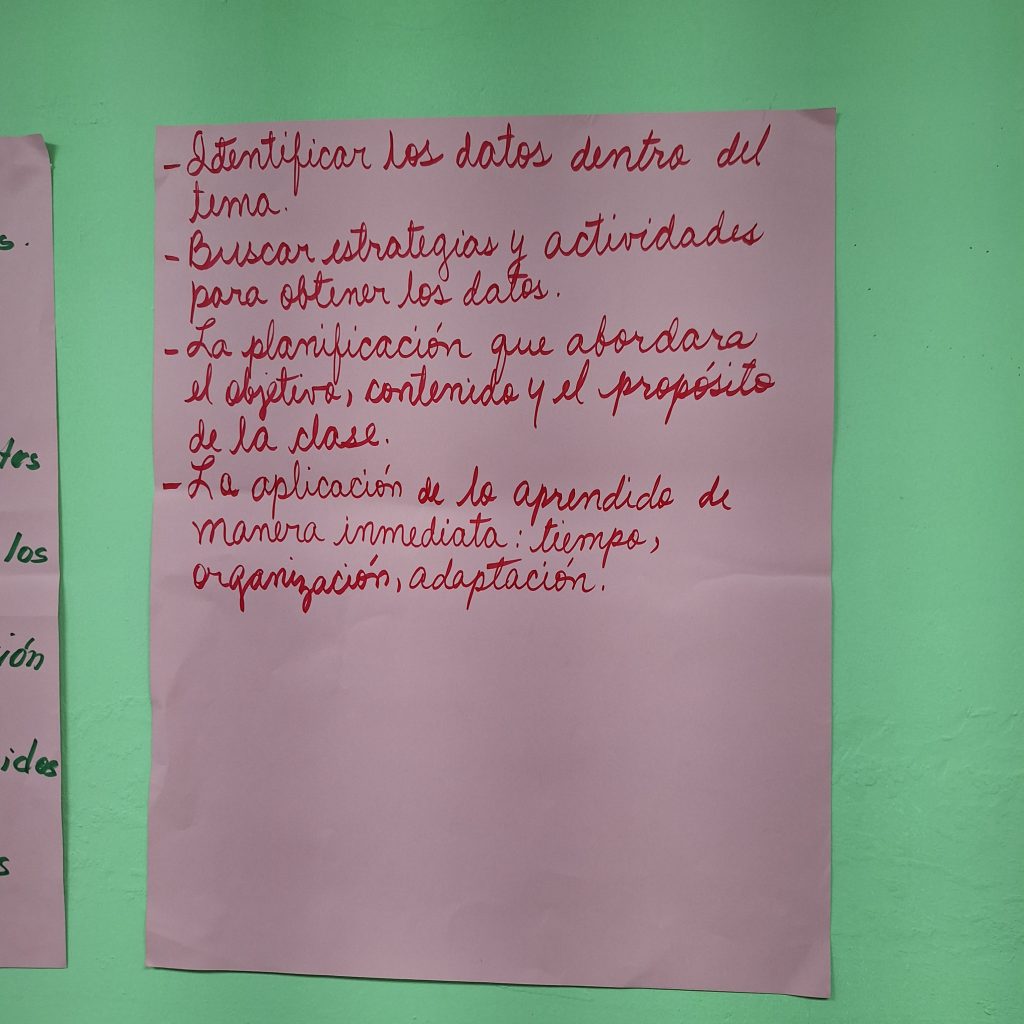 s.
tes
los
ión
idos
s
- Identificar los datos dentro del
tema.
- Buscar estrategias y actividades
para obtener los datos.
- La planificación que abordara
el objetivo, contenido y el propósito
de la clase.
- La aplicación de lo aprendido de
manera inmediata: tiempo,
organización, adaptación.